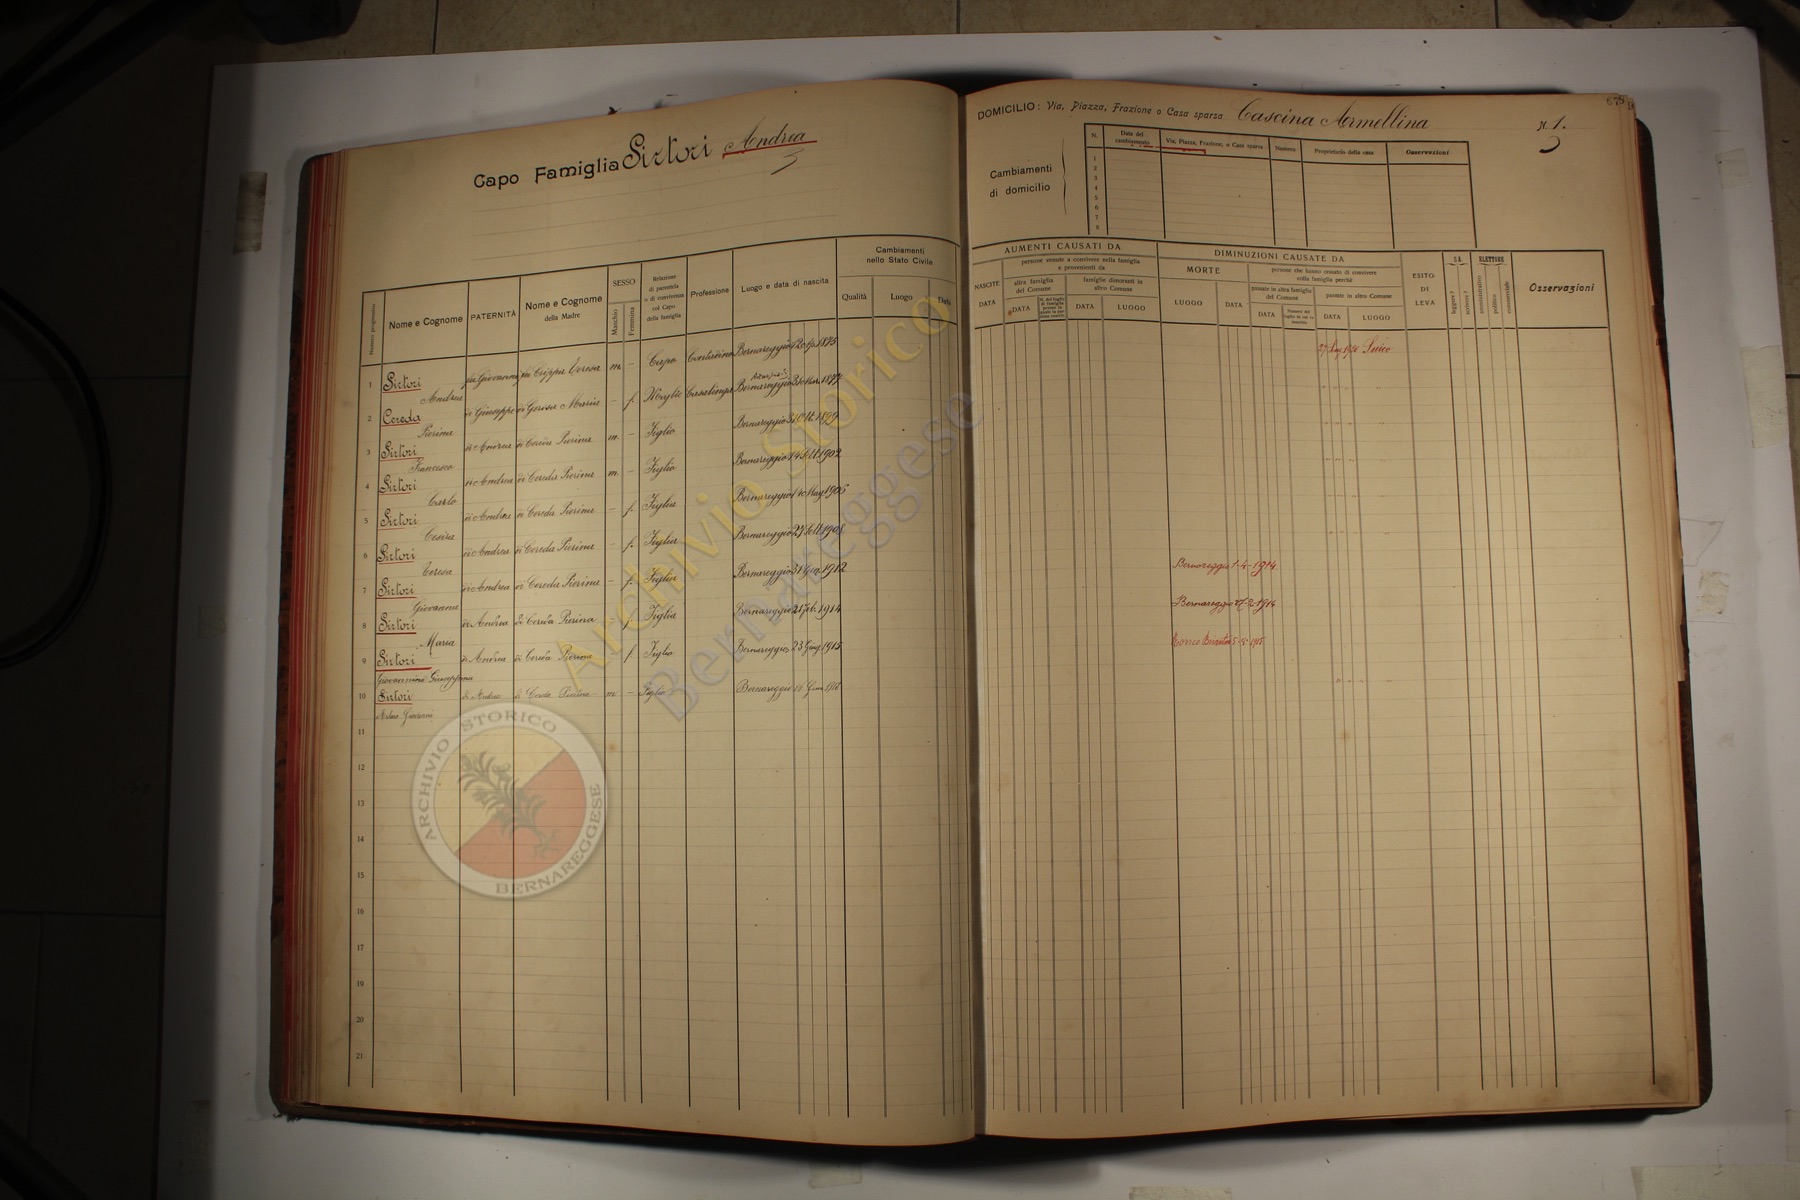 Capo Famiglia Sirtori Andrea
3
Cambiamenti
nello Stato Civile
Numero progressivo
Nome e Cognome
PATERNITÀ
Nome e Cognome
della Madre
SESSO
Maschio
Femmina
Relazione
di parentela
o di convivenza
col Capo
della famiglia
Professione
Luogo e data di nascita
Qualità
Luogo
Data
1 Sirtori Andrea fu Giovanni fu Crippa Teresa m. - Capo Contadino Bernareggio 1875
2 Cereda Pierina di Giuseppe di Maria - f. Moglie Casalinga Bernareggio 1877
3 Sirtori Francesco di Andrea di Cereda Pierina m. - Figlio Bernareggio 31 Ott. 1899
4 Sirtori Carlo di Andrea di Cereda Pierina m. - Figlio Bernareggio 14 Sett. 1902
5 Sirtori Cesira di Andrea di Cereda Pierina - f. Figlia Bernareggio 1 Mag. 1905
6 Sirtori Teresa di Andrea di Cereda Pierina - f. Figlia Bernareggio 27 Sett. 1908
7 Sirtori Giovanna di Andrea di Cereda Pierina - f. Figlia Bernareggio 31 Gen. 1912
8 Sirtori Maria di Andrea di Cereda Pierina f Figlia Bernareggio 21 Feb. 1914
9 Sirtori Giovannina Giuseppina di Andrea di Cereda Pierina f Figlia Bernareggio 23 Giug. 1915
10 Sirtori di Andrea di Cereda Pierina m - Figlio Bernareggio
11
12
13
14
15
16
17
18
19
20
21
DOMICILIO: Via, Piazza, Frazione o Casa sparsa Cascina Armellina N. 1.
3
675
Cambiamenti
di domicilio
N.
Data del
cambiamento
Via, Piazza, Frazione, o Casa sparsa
Numero
Proprietario della casa
Osservazioni
1
2
3
4
5
6
7
8
AUMENTI CAUSATI DA
NASCITE
DATA
persone venute a convivere nella famiglia
e provenienti da
altra famiglia
del Comune
DATA
famiglie dimoranti in
altro Comune
DATA
LUOGO
DIMINUZIONI CAUSATE DA
MORTE
LUOGO
DATA
persone che hanno cessato di convivere
colla famiglia perchè
passate in altra famiglia
del Comune
DATA
passate in altro Comune
DATA
LUOGO
ESITO
DI
LEVA
SA
leggere?
scrivere?
ELETTORE
amministrativo
politico
commerciale
Osservazioni
Bernareggio 1-4-1914
Bernareggio 27-2-1914
ARCHIVIO STORICO
BERNAREGGESE
Archivio Storico
Bernareggese